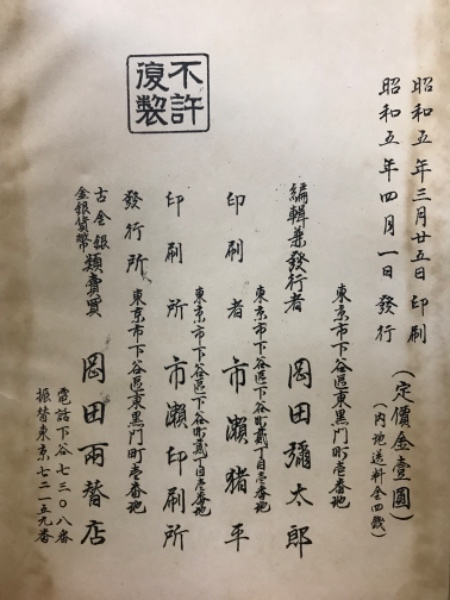 昭和五年三月廿五日印刷
昭和五年四月一日發行
(定價金壹圓)
(内地送料金四錢)
東京市下谷區東黑門町壱番地
編輯兼發行者 岡田彌太郎
東京市下谷區下谷町貳丁目壱番地
印刷者 市瀨猪平
東京市下谷區下谷町貳丁目壱番地
印刷所 市瀨印刷所
東京市下谷區東黑門町壱番地
發行所
古金銀
金銀貨幣
類賣買 岡田両替店
電話下谷七三〇八番
振替東京七二一五九番
不許
復製